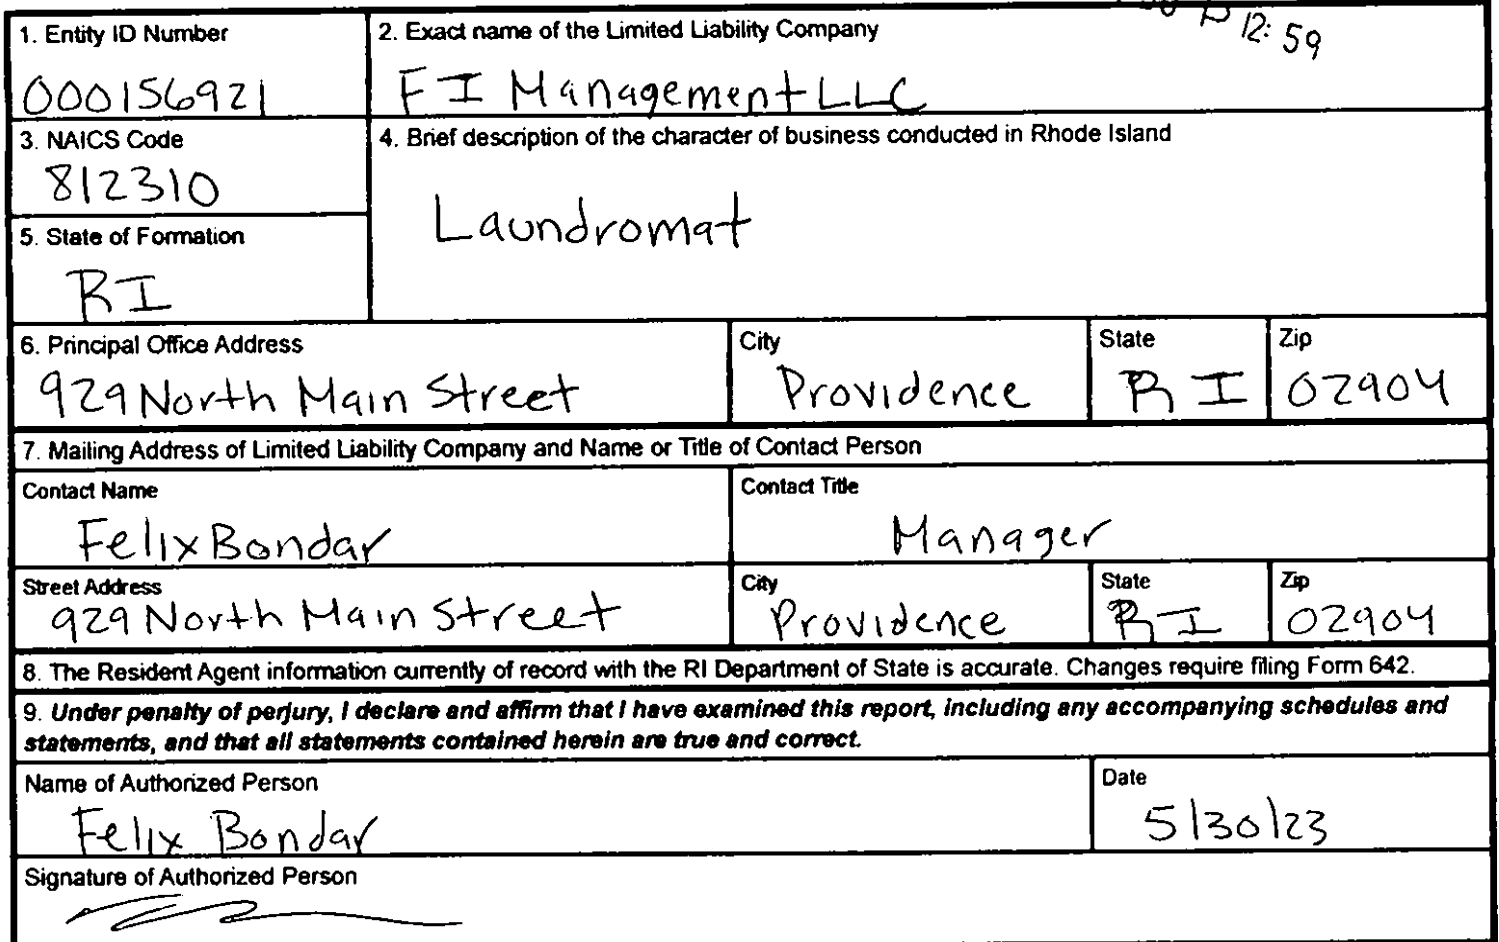 12:59
1. Entity ID Number
000156921
2. Exact name of the Limited Liability Company
FI Management LLC
3. NAICS Code
812310
4. Brief description of the character of business conducted in Rhode Island
Laundromat
5. State of Formation
RI
6. Principal Office Address
929 North Main Street
City
Providence
State
RI
Zip
02904
7. Mailing Address of Limited Liability Company and Name or Title of Contact Person
Contact Name
Felix Bondar
Contact Title
Manager
Street Address
929 North Main Street
City
Providence
State
RI
Zip
02904
8. The Resident Agent information currently of record with the RI Department of State is accurate. Changes require filing Form 642.
9. Under penalty of perjury, I declare and affirm that I have examined this report, including any accompanying schedules and
statements, and that all statements contained herein are true and correct.
Name of Authorized Person
Felix Bondar
Date
5/30/23
Signature of Authorized Person